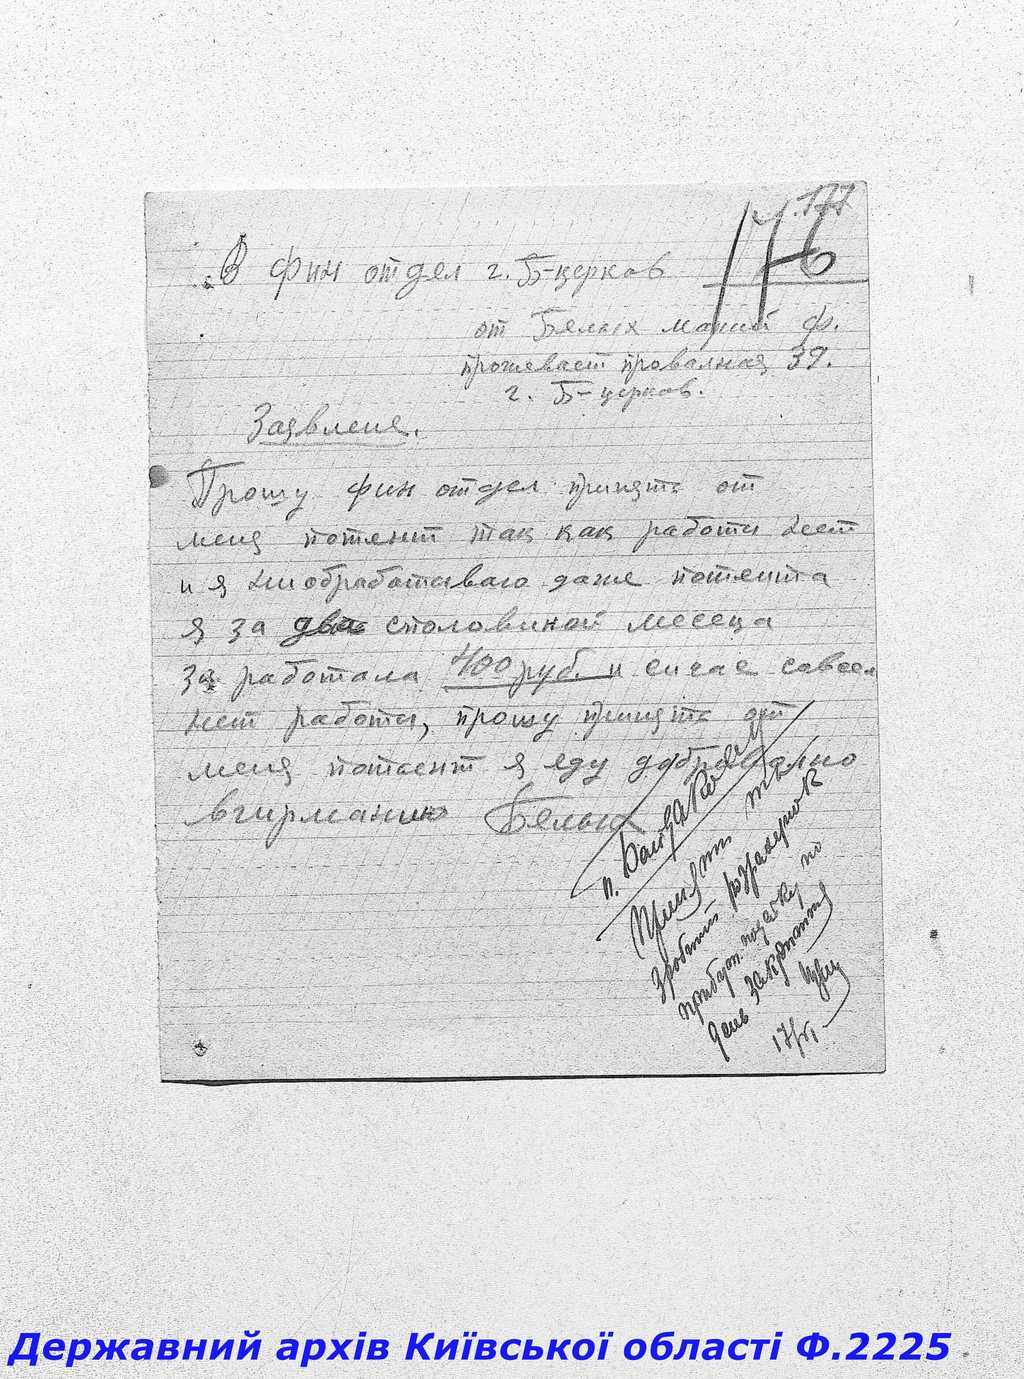 177
176
В фин отдел г. Б-церков
от Белых марии ф.
проживает провалная 39.
г. Б-церков.
Заявления.
Прошу фин отдел принять от
меня потент так как работи нет
и я ниобработаваю даже потента
я за два споловиной месеца
за работала 400 руб. и сичас савсем
нет работи, прошу принять от
меня потаент я еду добравално
вгирманию Белых
п.
Принять та
зробити розрахунок
прибут. податку по
день закриття
17/VI
Державний архів Київської області Ф.2225